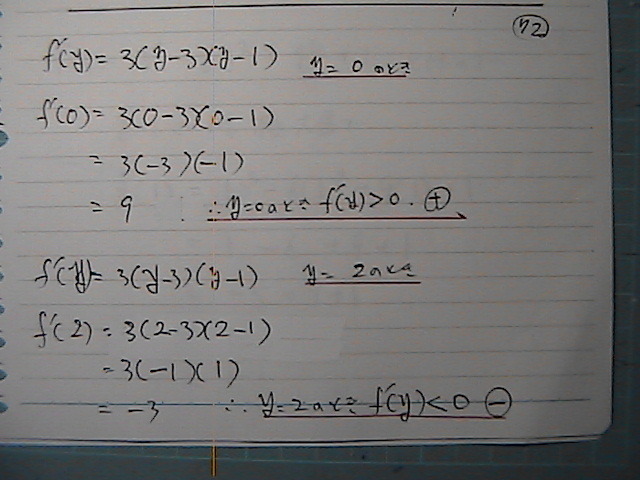 72
f'(y) = 3(y-3)(y-1) y = 0 のとき
f'(0) = 3(0-3)(0-1)
= 3(-3)(-1)
= 9 ∴ y=0のとき f'(y)>0. ⊕
f'(y) = 3(y-3)(y-1) y = 2のとき
f'(2) = 3(2-3)(2-1)
= 3(-1)(1)
= -3 ∴ y=2のとき f'(y)<0 ⊖